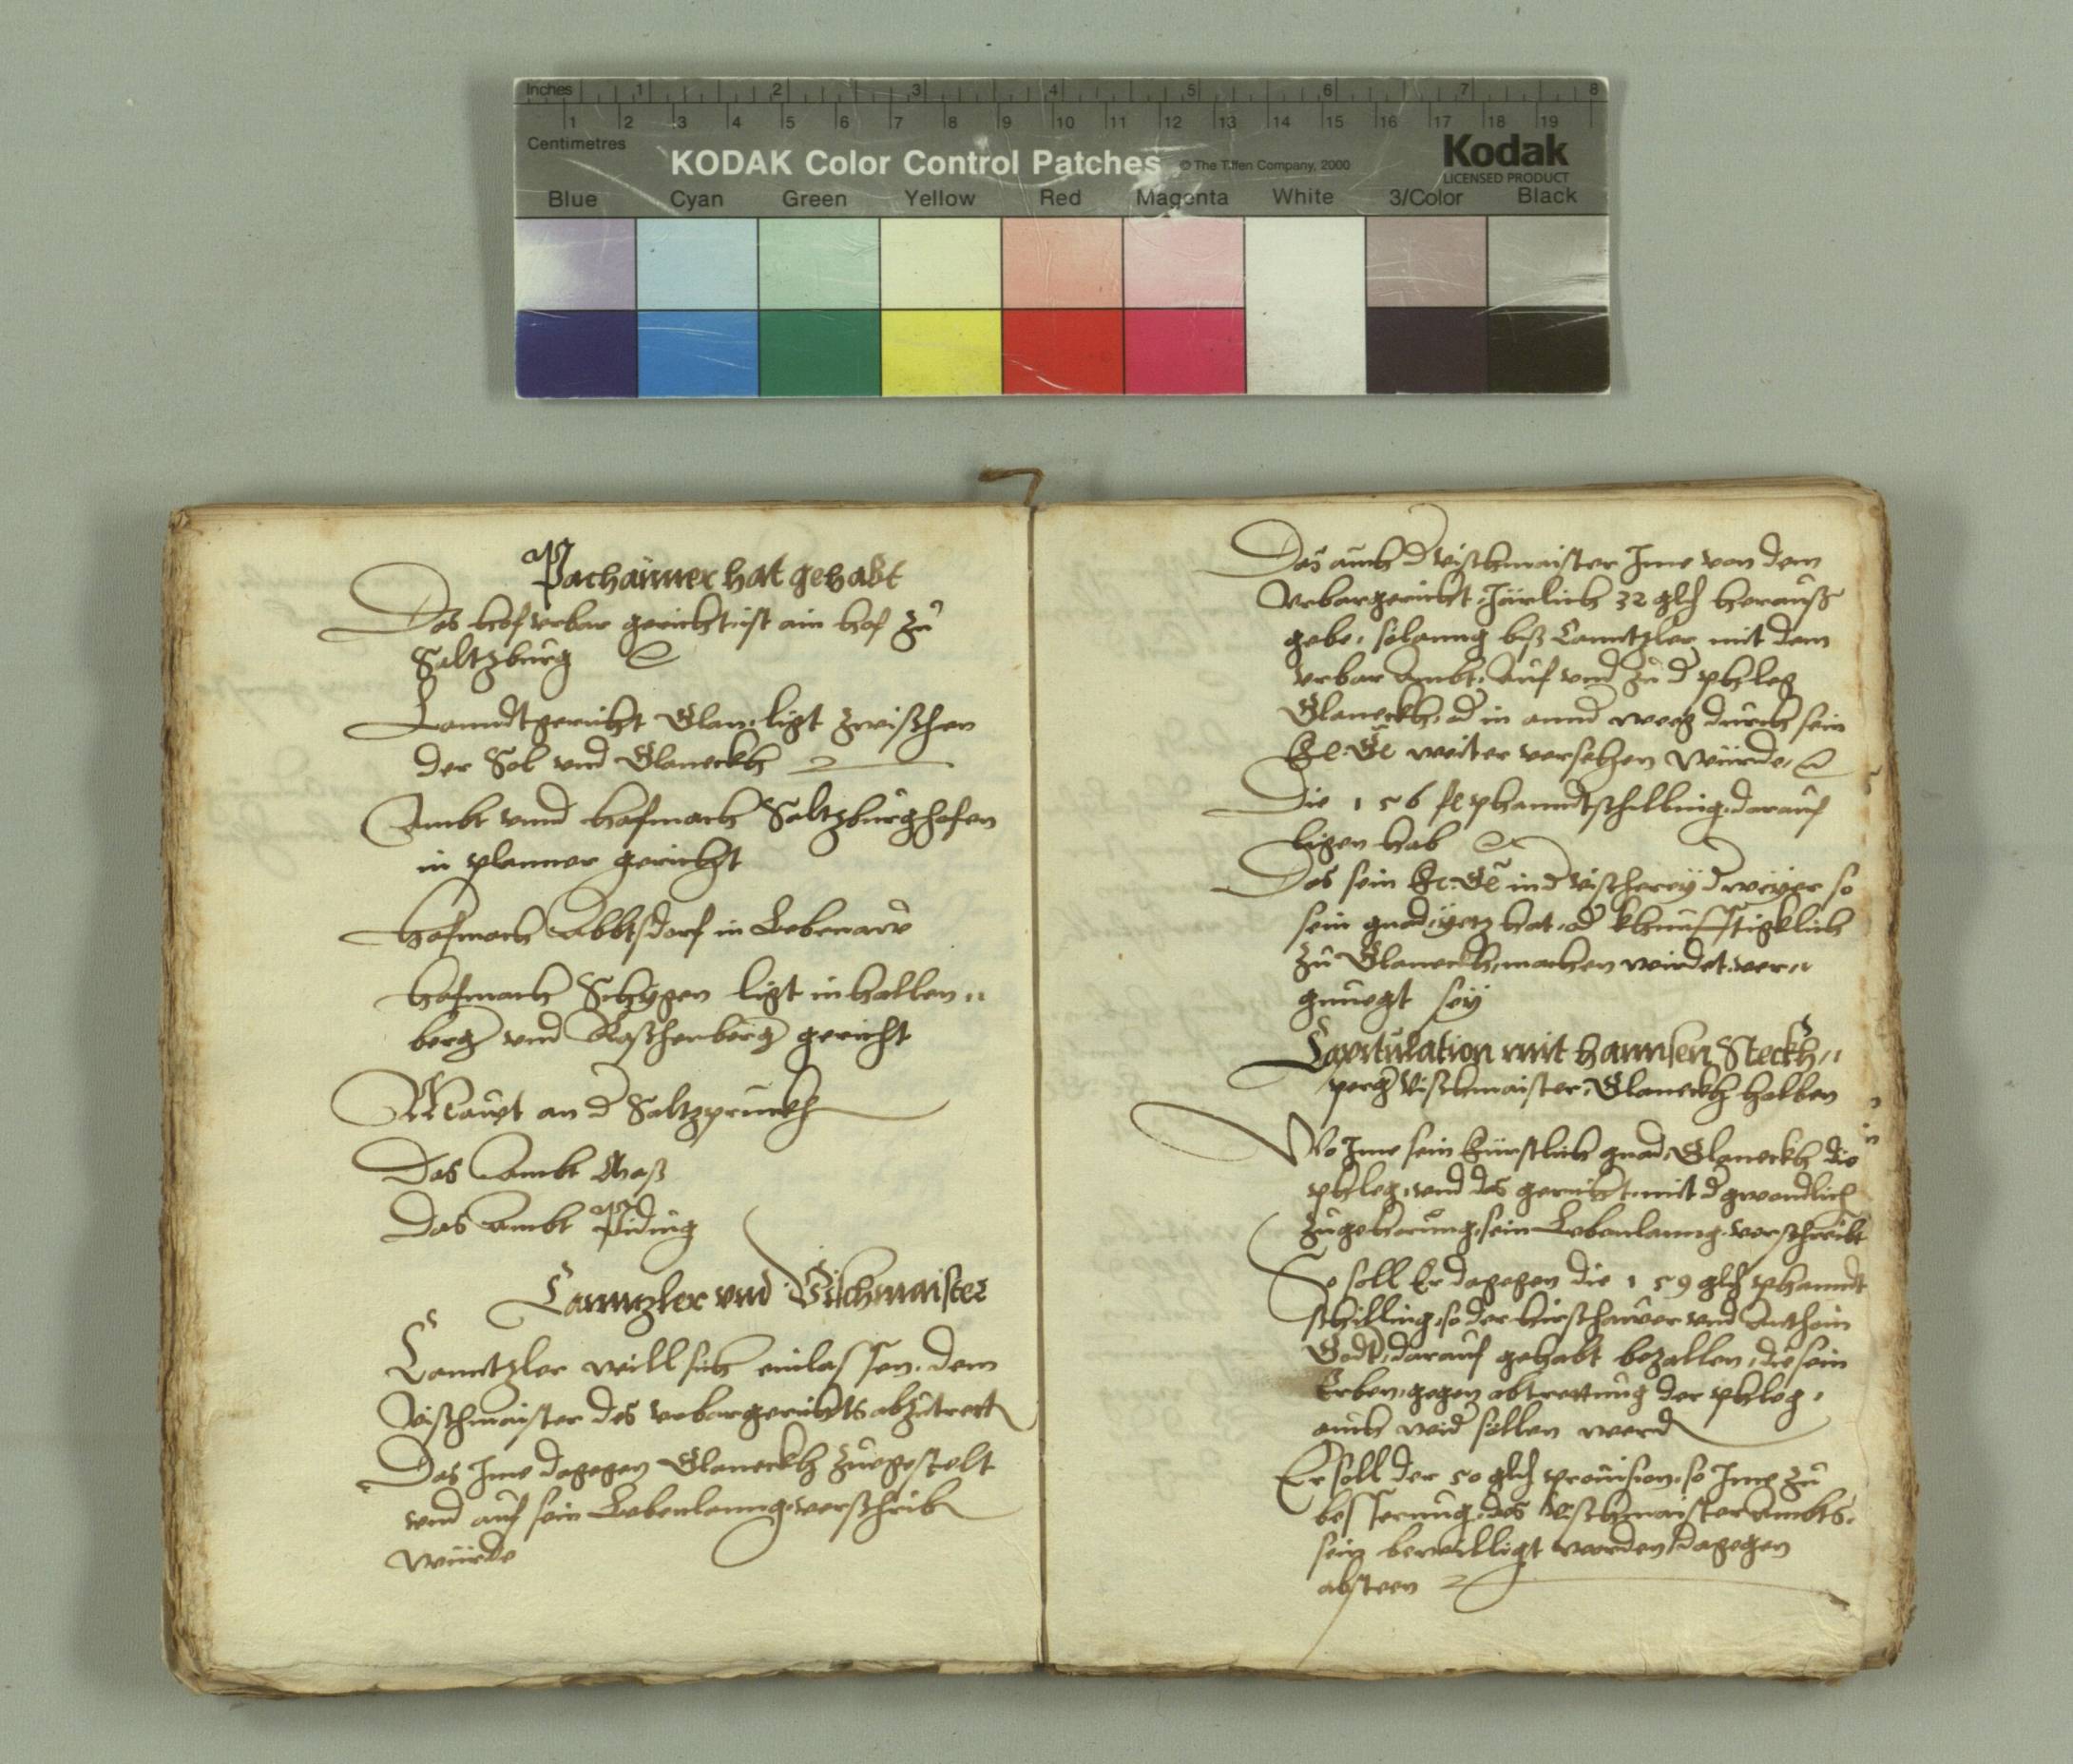 Inches 1 2 3 4 5 6 7 8
1 2 3 4 5 6 7 8 9 10 11 12 13 14 15 16 17 18 19
Centimetres
KODAK Color Control Patches © The Tiffen Company, 2000 Kodak
LICENSED PRODUCT
Blue Cyan Green Yellow Red Magenta White 3/Color Black
Pachaimer hat gehabt
Das hof vrbar gericht ist ain hof zu
Saltzburg
Lanndtgericht Glan, ligt zwischen
der Sal vnd Glaneckh
Ambt vnnd hofmarch Saltzburghofen
in plainer gericht
hofmarch Abbtsdorf in Lebenaw
hofmarch ligt in hallen„
berg vnd Raschenberg gericht
Maut an d Saltzpruckh
Das Ambt
Das Ambt Piding
Canntzler vnd Vischmaister
Canntzler will sich einlassen, dem
Vischmaister des vrbargerichts abzutrett
Das Ime dagegen Glaneckh zuegestelt
vnd auf sein Lebenlanng verschrib
wurde
Das auch d Vischmaister Ime von dem
Vrbargericht Järlich 32 herauß
gebe, solanng biß Canntzler mit dem
vrbar Ambt, Auf vnd zu d phleg
Glaneckh, od in annd weeg durch sein
weiter versehen wurde,
Die 156 fl phanndtschilling, darauf
ligen hab
Das sein in d Vischerey d weyer so
sein gnad yetz hat, od khunfftigklich
zu Glaneckh, machen wirdet, ver„
gnuegt sey
Capitulation mit hannsen Steckh„
perg Vischmaister, Glaneckh halben
Wo Ime sein fürstlich gnad, Glaneckh die
phleg, vnd das gericht, mit d gwondlich
zugehorung, sein Lebenlanng verschreibt
So soll Er dagegen die 159 phanndt
schilling, so der hirschauer vnd
darauf gehabt bezallen, die sein
Erben, gegen abtrettung der phleg,
auch wid sollen werd
Er soll der 50 prouision, so Ime zu
besserung, des Vischmaisterambts,
sein bewilligt worden, dagegen
absteen